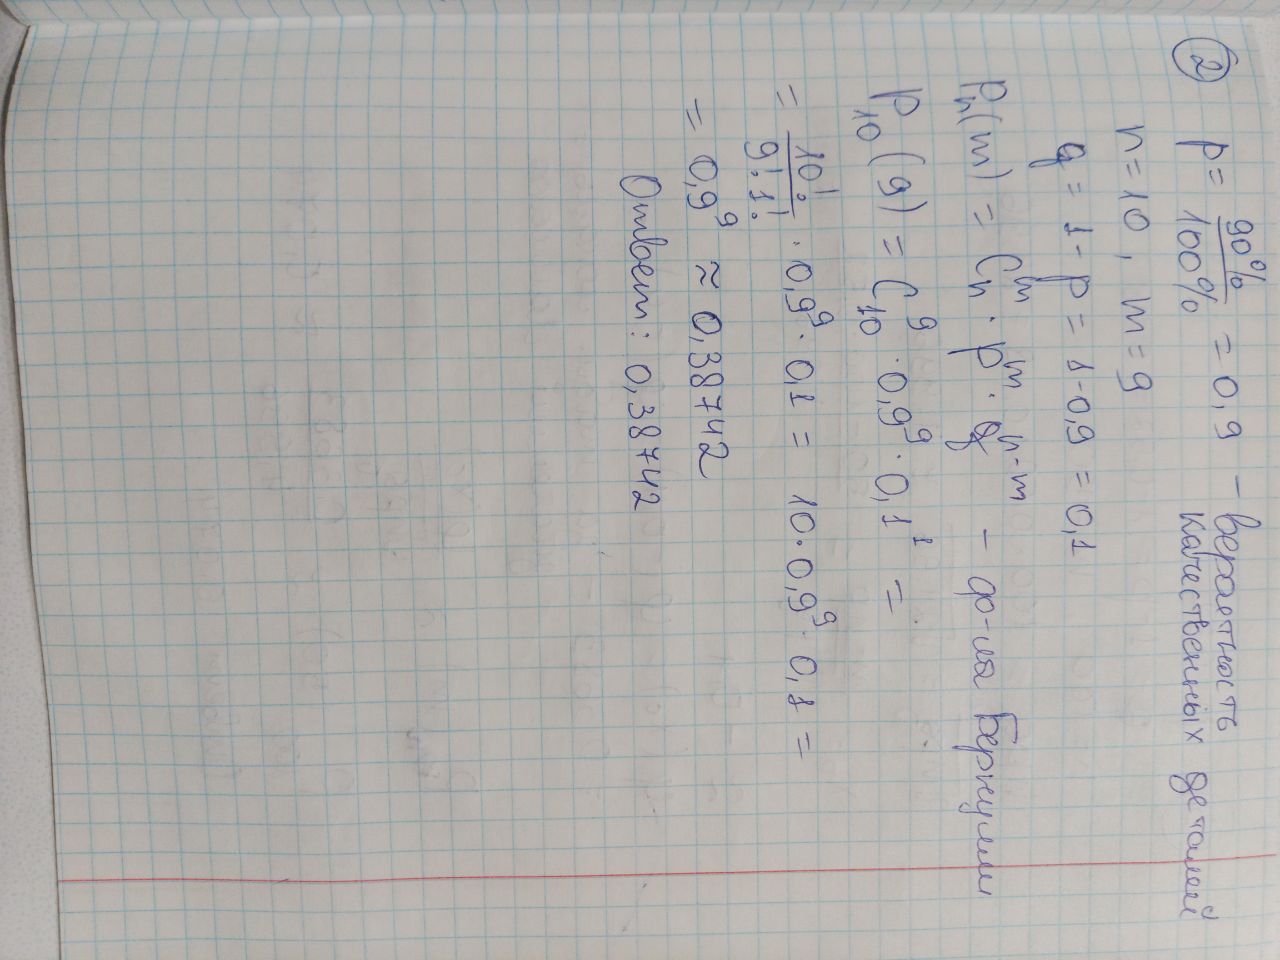 2 p = 90%/100% = 0,9 - вероятность
качественных деталей
n=10, m=9
q = 1-p = 1-0,9 = 0,1
Pₙ(m) = Cₙᵐ · pᵐ · qⁿ⁻ᵐ - ф-ла Бернулли
P₁₀(9) = C₁₀⁹ · 0,9⁹ · 0,1¹ =
= 10!/9!·1! · 0,9⁹ · 0,1 = 10·0,9⁹·0,1 =
= 0,9⁹ ≈ 0,38742
Ответ: 0,38742